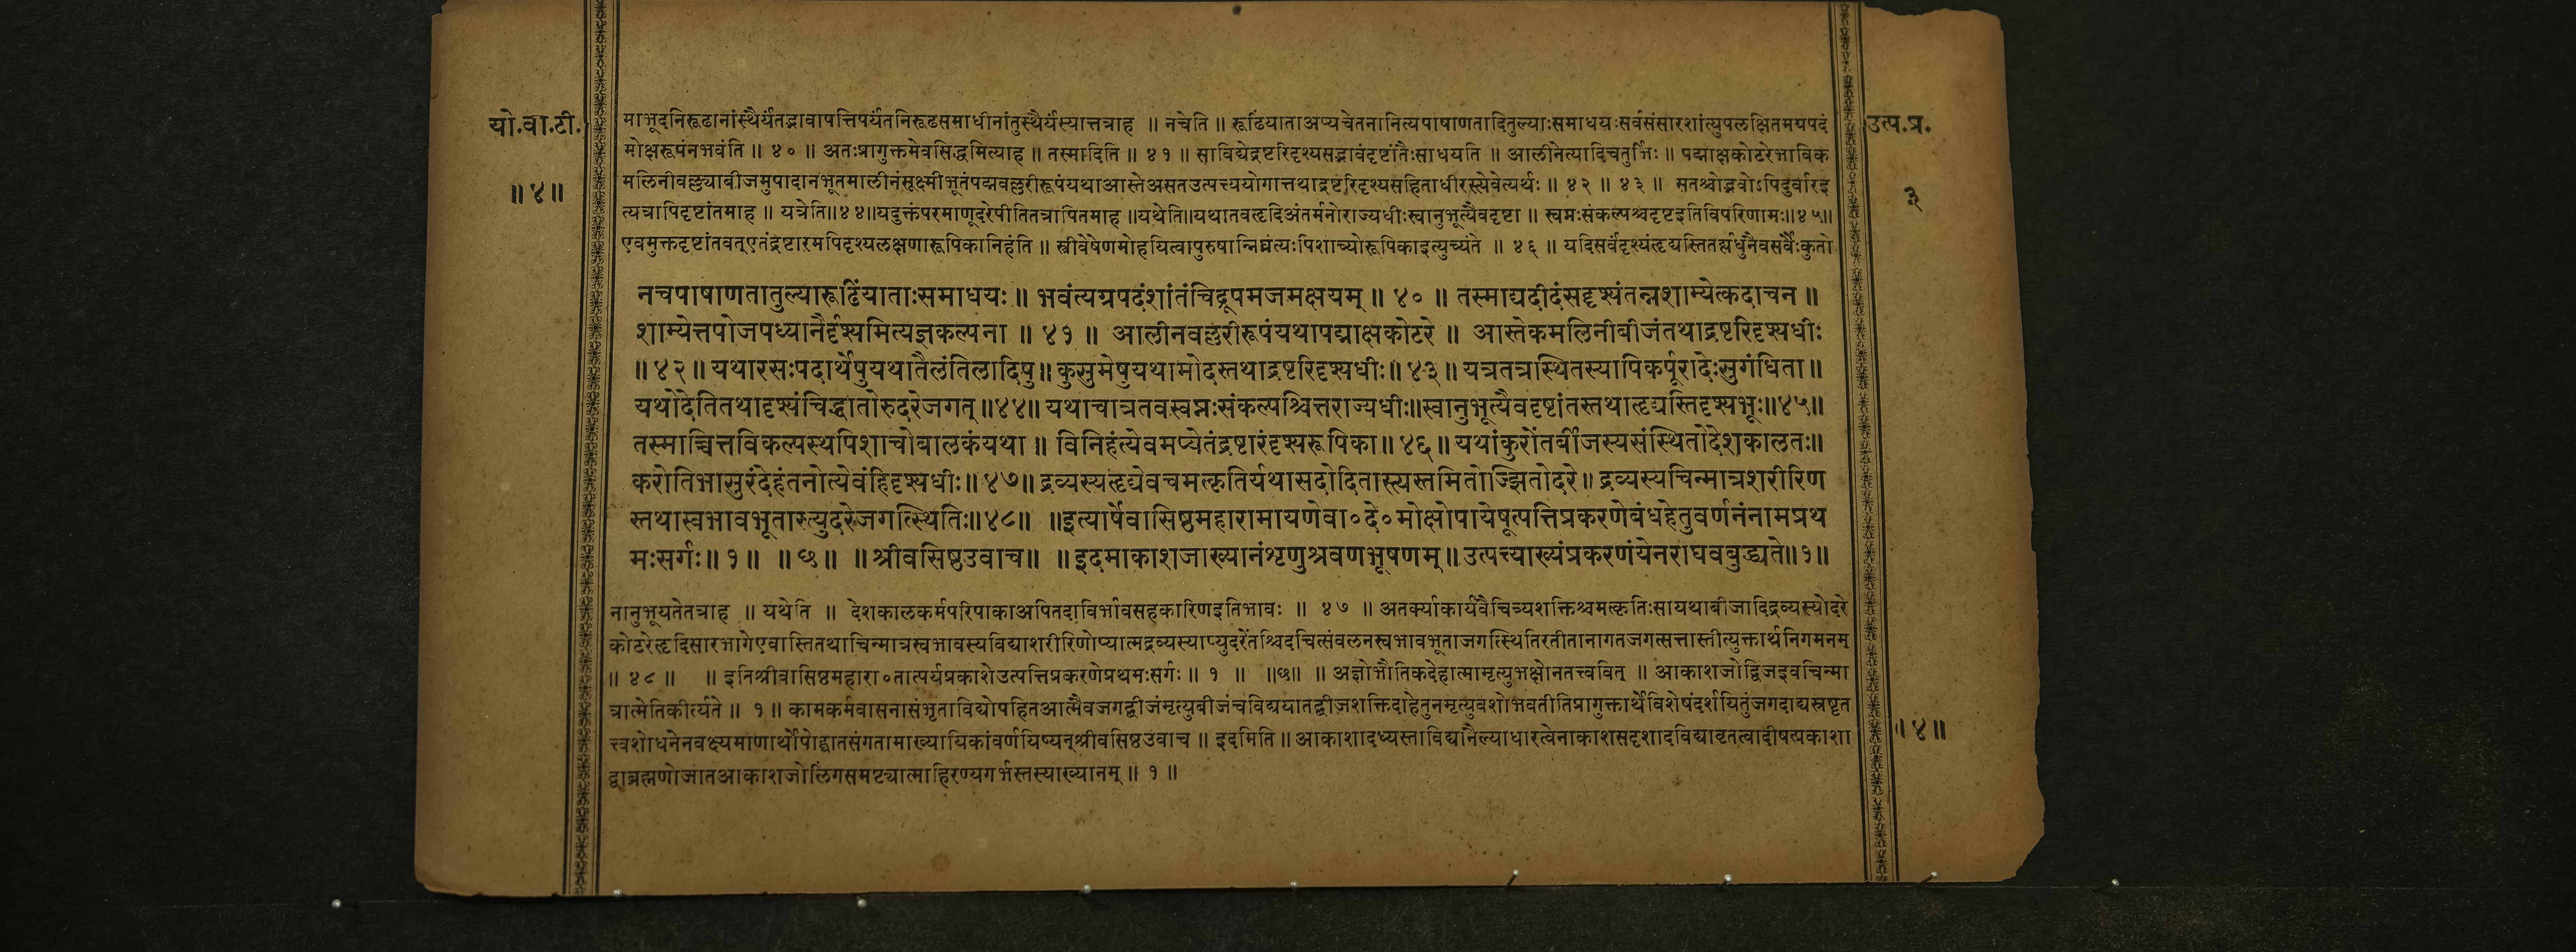 यो.वा.टी.
॥४॥
माभूदनिरूढानांस्थैर्यंतद्भावाषत्तिपर्यंतनिरूढसमाधीनांतुस्थैर्यंस्यात्तत्राह ॥ नचेति ॥ रूढिंयाताअप्यचेतनानित्यपाषाणतादितुल्याःसमाधयःसर्वसंसारशांत्युपलक्षितमग्रपदं
मोक्षरूपंनभवंति ॥ ४० ॥ अतःप्रागुक्तमेवसिद्धमित्याह ॥ तस्मादिति ॥ ४१ ॥ साविद्येद्रष्टरिदृश्यसद्भावंदृष्टांतैःसाधयति ॥ आलीनेत्यादिचतुर्भिः ॥ पद्माक्षकोटरेभाविक
मलिनीवल्लुयाबीजमुपादानभूतमालीनंसूक्ष्मीभूतंपद्मवल्लरीरूपंयथाआस्तेअसतउत्पत्त्ययोगात्तथाद्रष्टरिदृश्यसहिताधीरस्त्येवेत्यर्थः ॥ ४२ ॥ ४३ ॥ सतश्चोद्भवोऽपिदुर्वारइ
त्यत्रापिदृष्टांतमाह ॥ यत्रेति॥४४॥यदुक्तंपरमाणूदरेपीतितत्रापितमाह ॥यथेति॥यथातवहृदिअंतर्मनोराज्यधीःस्वानुभूत्यैवदृष्टा ॥ स्वप्नःसंकल्पश्चदृष्टइतिविपरिणामः॥४५॥
एवमुक्तदृष्टांतवत्एतंद्रष्टारमपिदृश्यलक्षणारूपिकानिहंति ॥ स्त्रीवेषेणमोहयित्वापुरुषान्निघ्नंत्यःपिशाच्योरूपिकाइत्युच्यंते ॥ ४६ ॥ यदिसर्वंदृश्यंहृद्यस्तितर्ह्यधुनैवसर्वैःकुतो
नचपाषाणतातुल्यारूढिंयाताःसमाधयः ॥ भवंत्यग्रपदंशांतंचिद्रूपमजमक्षयम् ॥ ४० ॥ तस्माद्यदीदंसदृश्यंतन्नशाम्येत्कदाचन ॥
शाम्येत्तपोजपध्यानैर्दृश्यमित्यज्ञकल्पना ॥ ४१ ॥ आलीनवल्लरीरूपंयथापद्माक्षकोटरे ॥ आस्तेकमलिनीबीजंतथाद्रष्टरिदृश्यधीः
॥ ४२ ॥ यथारसःपदार्थेषुयथातैलंतिलादिषु ॥ कुसुमेषुयथामोदस्तथाद्रष्टरिदृश्यधीः॥ ४३ ॥ यत्रतत्रस्थितस्यापिकर्पूरादेःसुगंधिता ॥
यथोदेतितथादृश्यंचिद्धातोरुदरेजगत् ॥४४॥ यथाचात्रतवस्वप्नःसंकल्पश्चित्तराज्यधीः॥स्वानुभूत्यैवदृष्टांतस्तथाहृद्यस्तिदृश्यभूः॥४५॥
तस्माच्चित्तविकल्पस्थपिशाचोबालकंयथा ॥ विनिहंत्येवमप्येतंद्रष्टारंदृश्यरूपिका ॥ ४६ ॥ यथांकुरोंतर्बीजस्यसंस्थितोदेशकालतः॥
करोतिभासुरंदेहंतनोत्येवंहिदृश्यधीः॥ ४७ ॥ द्रव्यस्यहृद्येवचमत्कृतिर्यथासदोदितास्त्यस्तमितोज्झितोदरे ॥ द्रव्यस्यचिन्मात्रशरीरिण
स्तथास्वभावभूतास्त्युदरेजगत्स्थितिः॥४८॥ ॥इत्यार्षेवासिष्ठमहारामायणेवा०दे०मोक्षोपायेषूत्पत्तिप्रकरणेबंधहेतुवर्णनंनामप्रथ
मःसर्गः ॥ १ ॥ ॥ छ ॥ ॥ श्रीवसिष्ठउवाच ॥ ॥ इदमाकाशजाख्यानंशृणुश्रवणभूषणम् ॥ उत्पत्त्याख्यंप्रकरणंयेनराघवबुद्ध्यते॥१॥
नानुभूयतेतत्राह ॥ यथेति ॥ देशकालकर्मपरिपाकाअपितदाविर्भावसहकारिणइतिभावः ॥ ४७ ॥ अतर्क्याकार्यवैचित्र्यशक्तिश्चमत्कृतिःसायथाबीजादिद्रव्यस्योदरे
कोटरेहृदिसारभागेएवास्तितथाचिन्मात्रस्वभावस्यविद्याशरीरिणोप्यात्मद्रव्यस्याप्युदरेंतश्चिदचित्संवलनस्वभावभूताजगत्स्थितिरतीतानागतजगत्सत्तास्तीत्युक्तार्थनिगमनम्
॥ ४८ ॥ ॥ इतिश्रीवासिष्ठमहारा०तात्पर्यप्रकाशेउत्पत्तिप्रकरणेप्रथमःसर्गः ॥ १ ॥ ॥छ॥ ॥ अज्ञोभौतिकदेहात्मामृत्युभक्षोनतत्त्ववित् ॥ आकाशजोद्विजइवचिन्मा
त्रात्मेतिकीर्त्यते ॥ १ ॥ कामकर्मवासनासंभृताविद्योपहितआत्मैवजगद्बीजंमृत्युबीजंचविद्ययातद्बीजशक्तिदाहेतुनमृत्युवशोभवतीतिप्रागुक्तार्थेविशेषंदर्शयितुंजगदाद्यस्रष्टृत
त्त्वशोधनेनवक्ष्यमाणार्थोपोद्घातसंगतामाख्यायिकांवर्णयिष्यन्श्रीवसिष्ठउवाच ॥ इदमिति ॥ आकाशादध्यस्ताविद्यानैल्याधारत्वेनाकाशसदृशादविद्यावृतत्वादीषत्प्रकाशा
द्वाब्रह्मणोजातआकाशजोलिंगसमष्ट्यात्माहिरण्यगर्भस्तस्याख्यानम् ॥ १ ॥
उत्प.प्र.
३
॥४॥